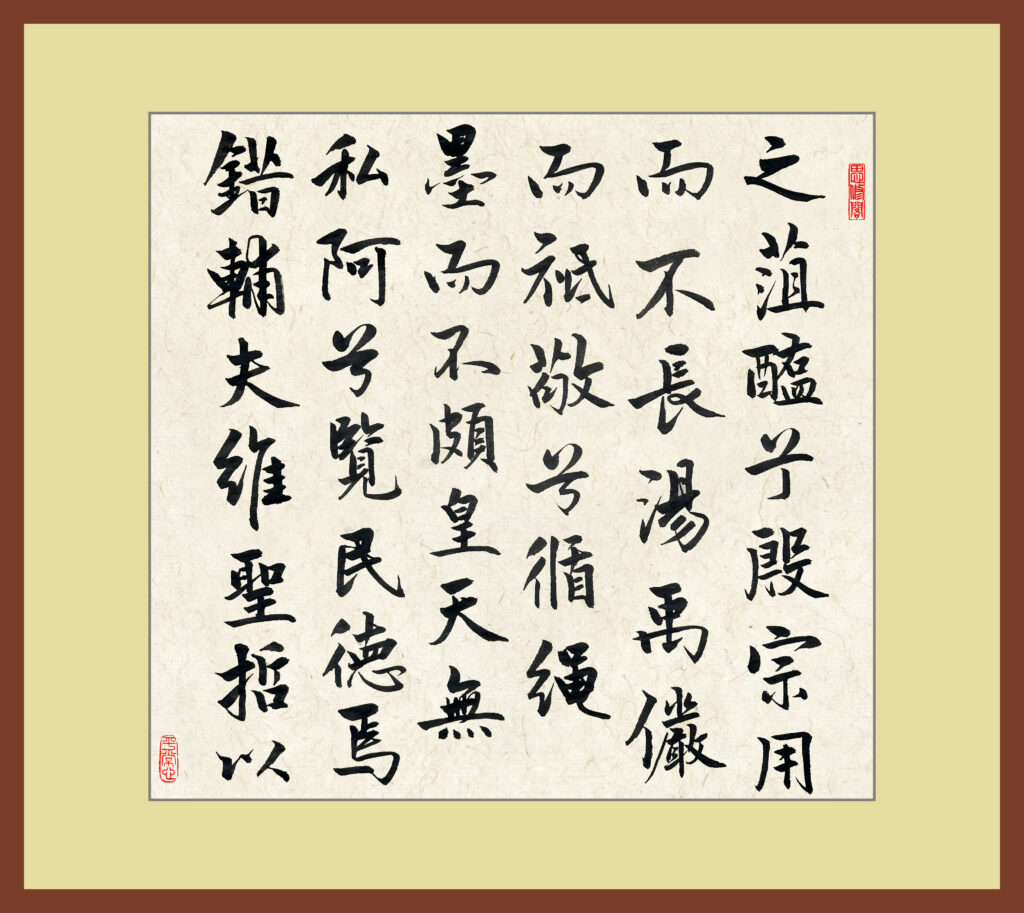 思修閣
之菹醢兮殷宗用
而不長湯禹儼
而祗敬兮循绳
墨而不頗皇天無
私阿兮覽民德焉
錯輔夫維聖哲以
平常心